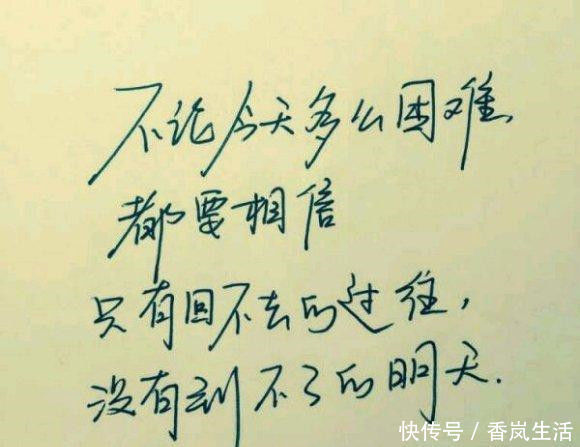 不论今天多么困难,
都要相信
只有回不去的过往,
没有到不了的明天.
快传号/香岚生活